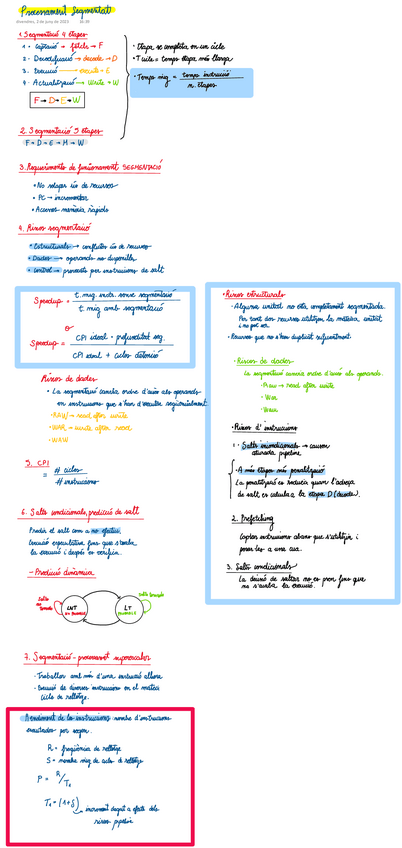 Processament Segmentat
1. Segmentació 4 etapes
1. Captació → fetch → F
2. Decodificació → decode → D
3. Execució → execute → E
4. Actualització → Write → W
F → D → E → W
• Etapa es completa en un cicle
• T cicle = temps etapa més llarga
• Temps mig = temps instrucció / n. etapes
2. Segmentació 5 etapes
F - D - E - M - W
3. Requeriments de funcionament SEGMENTACIÓ
• No solapar ús de recursos
• PC → incrementar
• Accessos memòria ràpids
4. Riscos segmentació
• Estructurals → conflictes ús de recursos
• Dades → operands no disponibles
• Control → provocats per instruccions de salt
Speedup = t. mig instr. sense segmentació / t. mig amb segmentació
o
Speedup = CPI ideal · profunditat seg. / CPI ideal + cicles detenció
Riscos de dades
• La segmentació canvia ordre d'accés als operands
en instruccions que s'han d'executar seqüencialment
• RAW → read after write
• WAR → write after read
• WAW
5. CPI
= # cicles / # instruccions
6. Salts condicionals, predicció de salt
Predir el salt com a no efectiu.
Execució especulativa fins que s'acaba
la execució i després es verifica.
- Predicció dinàmica
LNT
LT
7. Segmentació - processament superescalar
• Treballar amb més d'una instrucció alhora
• Execució de diverses instruccions en el mateix
cicle de rellotge.
Rendiment de les instruccions nombre d'instruccions
executades per segon.
R = freqüència de rellotge
S = nombre mig de cicles de rellotge
P = R/T₁
T₁ = (1+δ)
increment degut a efecte dels
riscos pipeline
• Riscos estructurals
• Alguna unitat no està completament segmentada.
Per tant dos recursos utilitzen la mateixa unitat
i no pot ser.
• Recursos que no s'han duplicat suficientment.
• Riscos de dades
La segmentació canvia ordre d'accés als operands.
• Raw → read after write
• War
• Waw
• Riscos d'instruccions
1. Salts incondicionals → causen
aturada pipeline.
• A més etapes més penalització
La penalització es redueix quan l'adreça
de salt es calcula a la etapa D (decode).
2. Prefetching
Captar instruccions abans que s'utilitzin i
posar-les a una cua.
3. Salts condicionals
La decisió de saltar no es pren fins que
no s'acaba la execució.